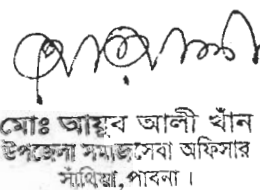 মোঃ আয়ুব আলী খাঁন
উপজেলা সমাজসেবা অফিসার
সাঁথিয়া, পাবনা ।